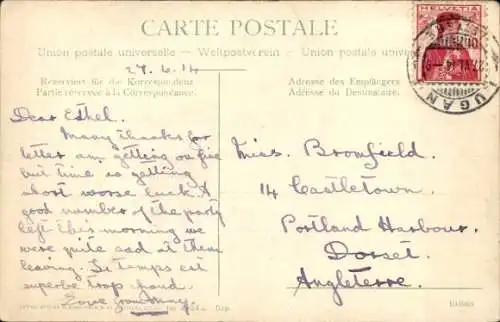 CARTE POSTALE
Union postale universelle — Weltpostverein — Union postale universelle
27.6.14
Reserviert für die Korrespondenz
Partie réservée à la Correspondance.
Adresse des Empfängers
Adresse du Destinataire.
HELVETIA
LUGANO
Dear Ethel.
Many thanks for
letter am getting on fine
but time is getting
short worse luck. A
good number of the party
left this morning we
were quite sad at them
leaving. Le temps est
superbe trop chaud.
Love from May.
Miss. Bromfield.
14 Castletown.
Portland Harbour.
Dorset.
Angleterre.